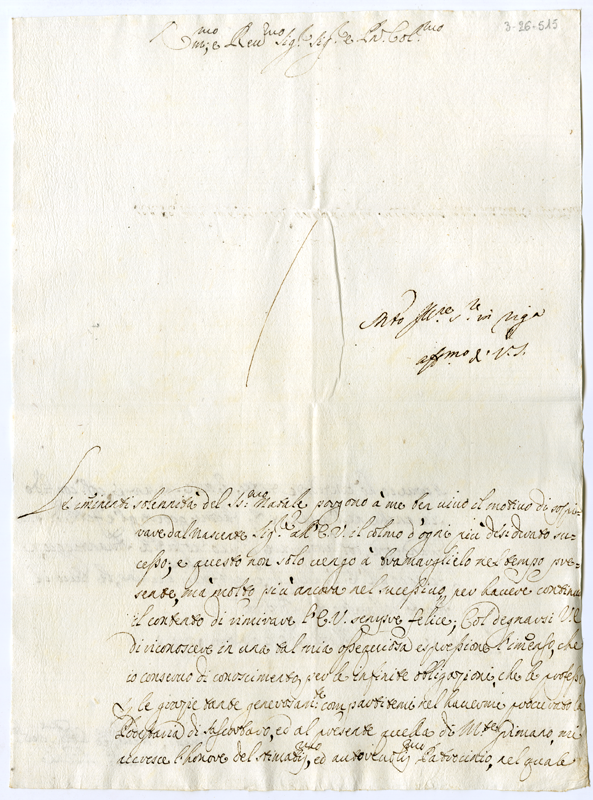 3-26-515
Em.mo e Reu.mo Sig.r Sig.r e Pn. Col.mo
Mto Ill.re S.re in
aff.mo di V.S.
Le iminenti solennità del SS.mo Natale porgono à me ben uiuo il motiuo di rospi-
rare dal Nascente Sig.re all'E.V. il colmo d'ogne più desiderato suc-
cesso; e questo non solo uengo à bramarglielo nel tempo pre-
sente, mà molto più ancora nel sucessiuo, per hauere continuo
il contento di rimirare l'E.V. sempre felice; Col degnarsi V.E.
di riconoscere in una tal mia ossequiosa espressione l'imenso, che
io conseruo di conoscimento per le infinite obligazioni, che le professo
p le grazie tanto generosam.te compartitemi nel hauermi proccurato la
Podestaria di ed al presente quella di mi
accresce l'honore del stimatis.mo, ed autoreuolis.mo Patrocinio, nel quale